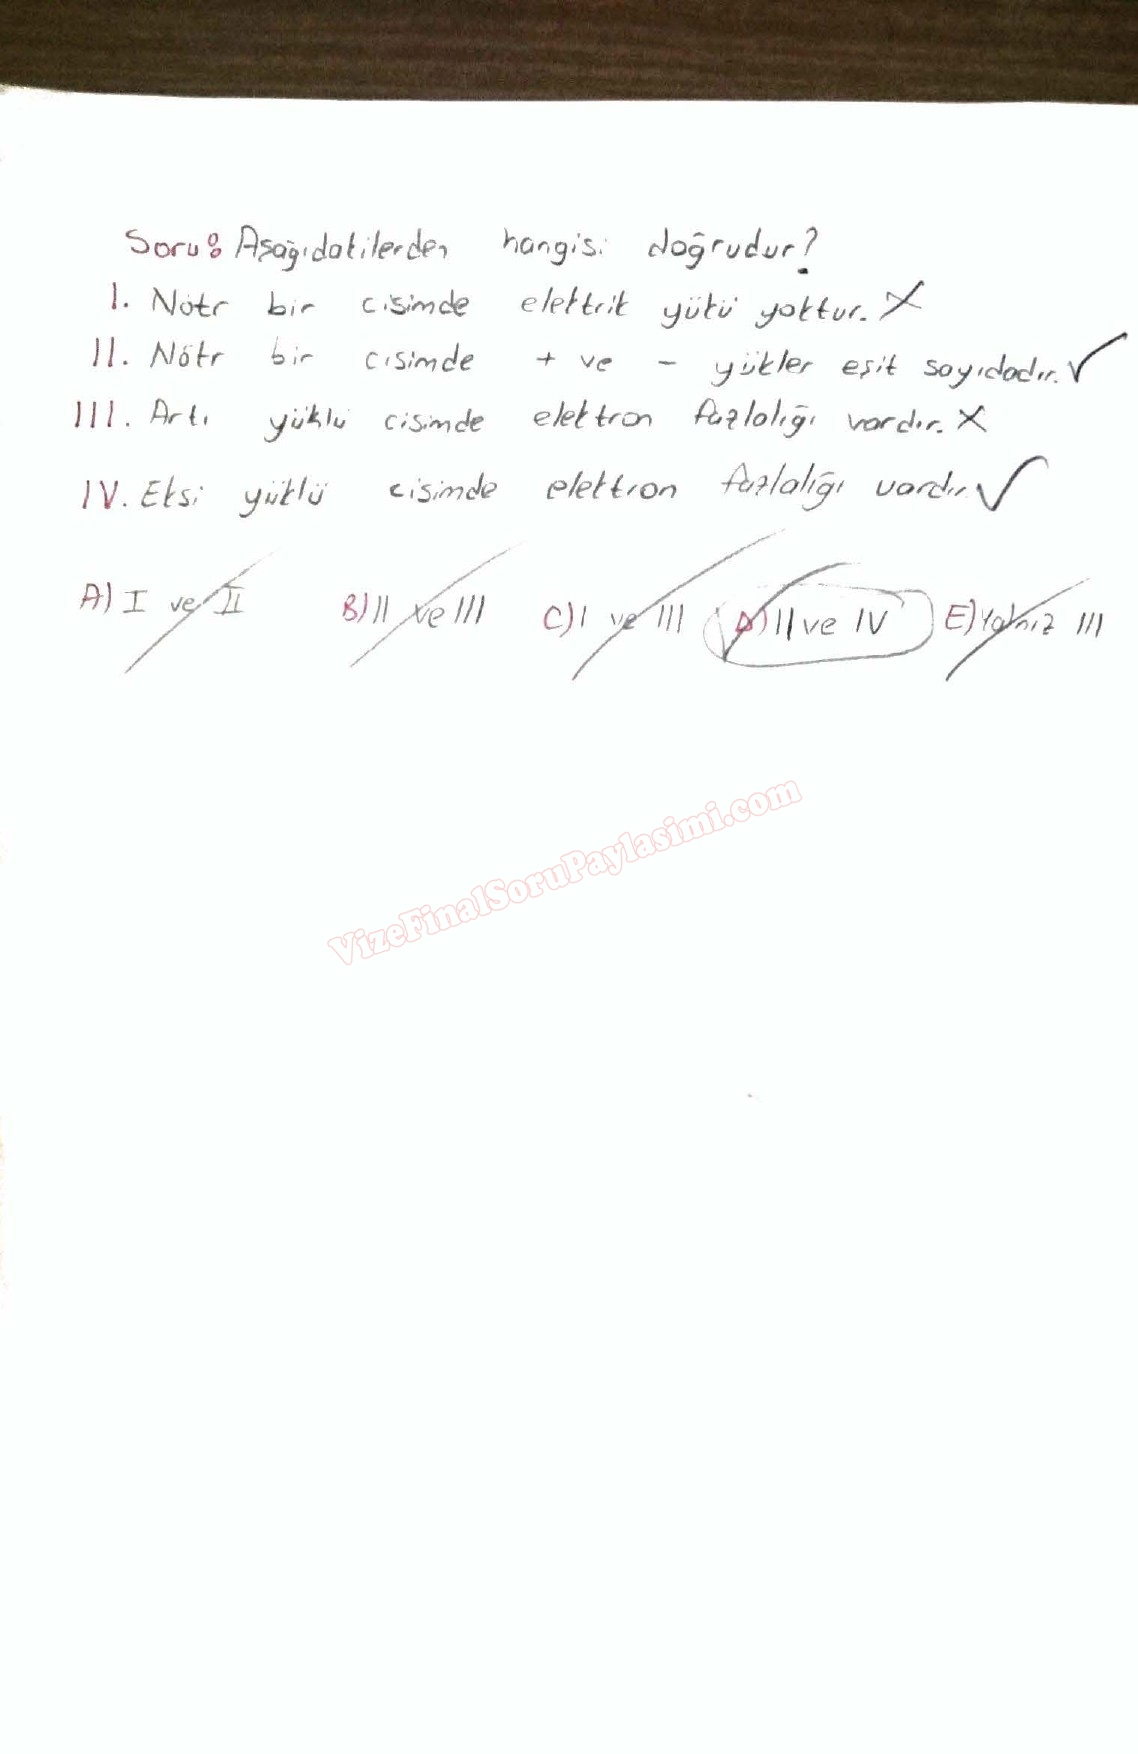 Soru: Aşağıdakilerden hangisi doğrudur?
I. Nötr bir cisimde elektrik yükü yoktur. X
II. Nötr bir cisimde + ve - yükler eşit sayıdadır. ✓
III. Artı yüklü cisimde elektron fazlalığı vardır. X
IV. Eksi yüklü cisimde elektron fazlalığı vardır. ✓
A) I ve II B) II ve III C) I ve III D) II ve IV E) Yalnız III
VizeFinalSoruPaylasimi.com